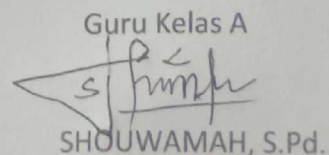 Guru Kelas A
SHOUWAMAH, S.Pd.